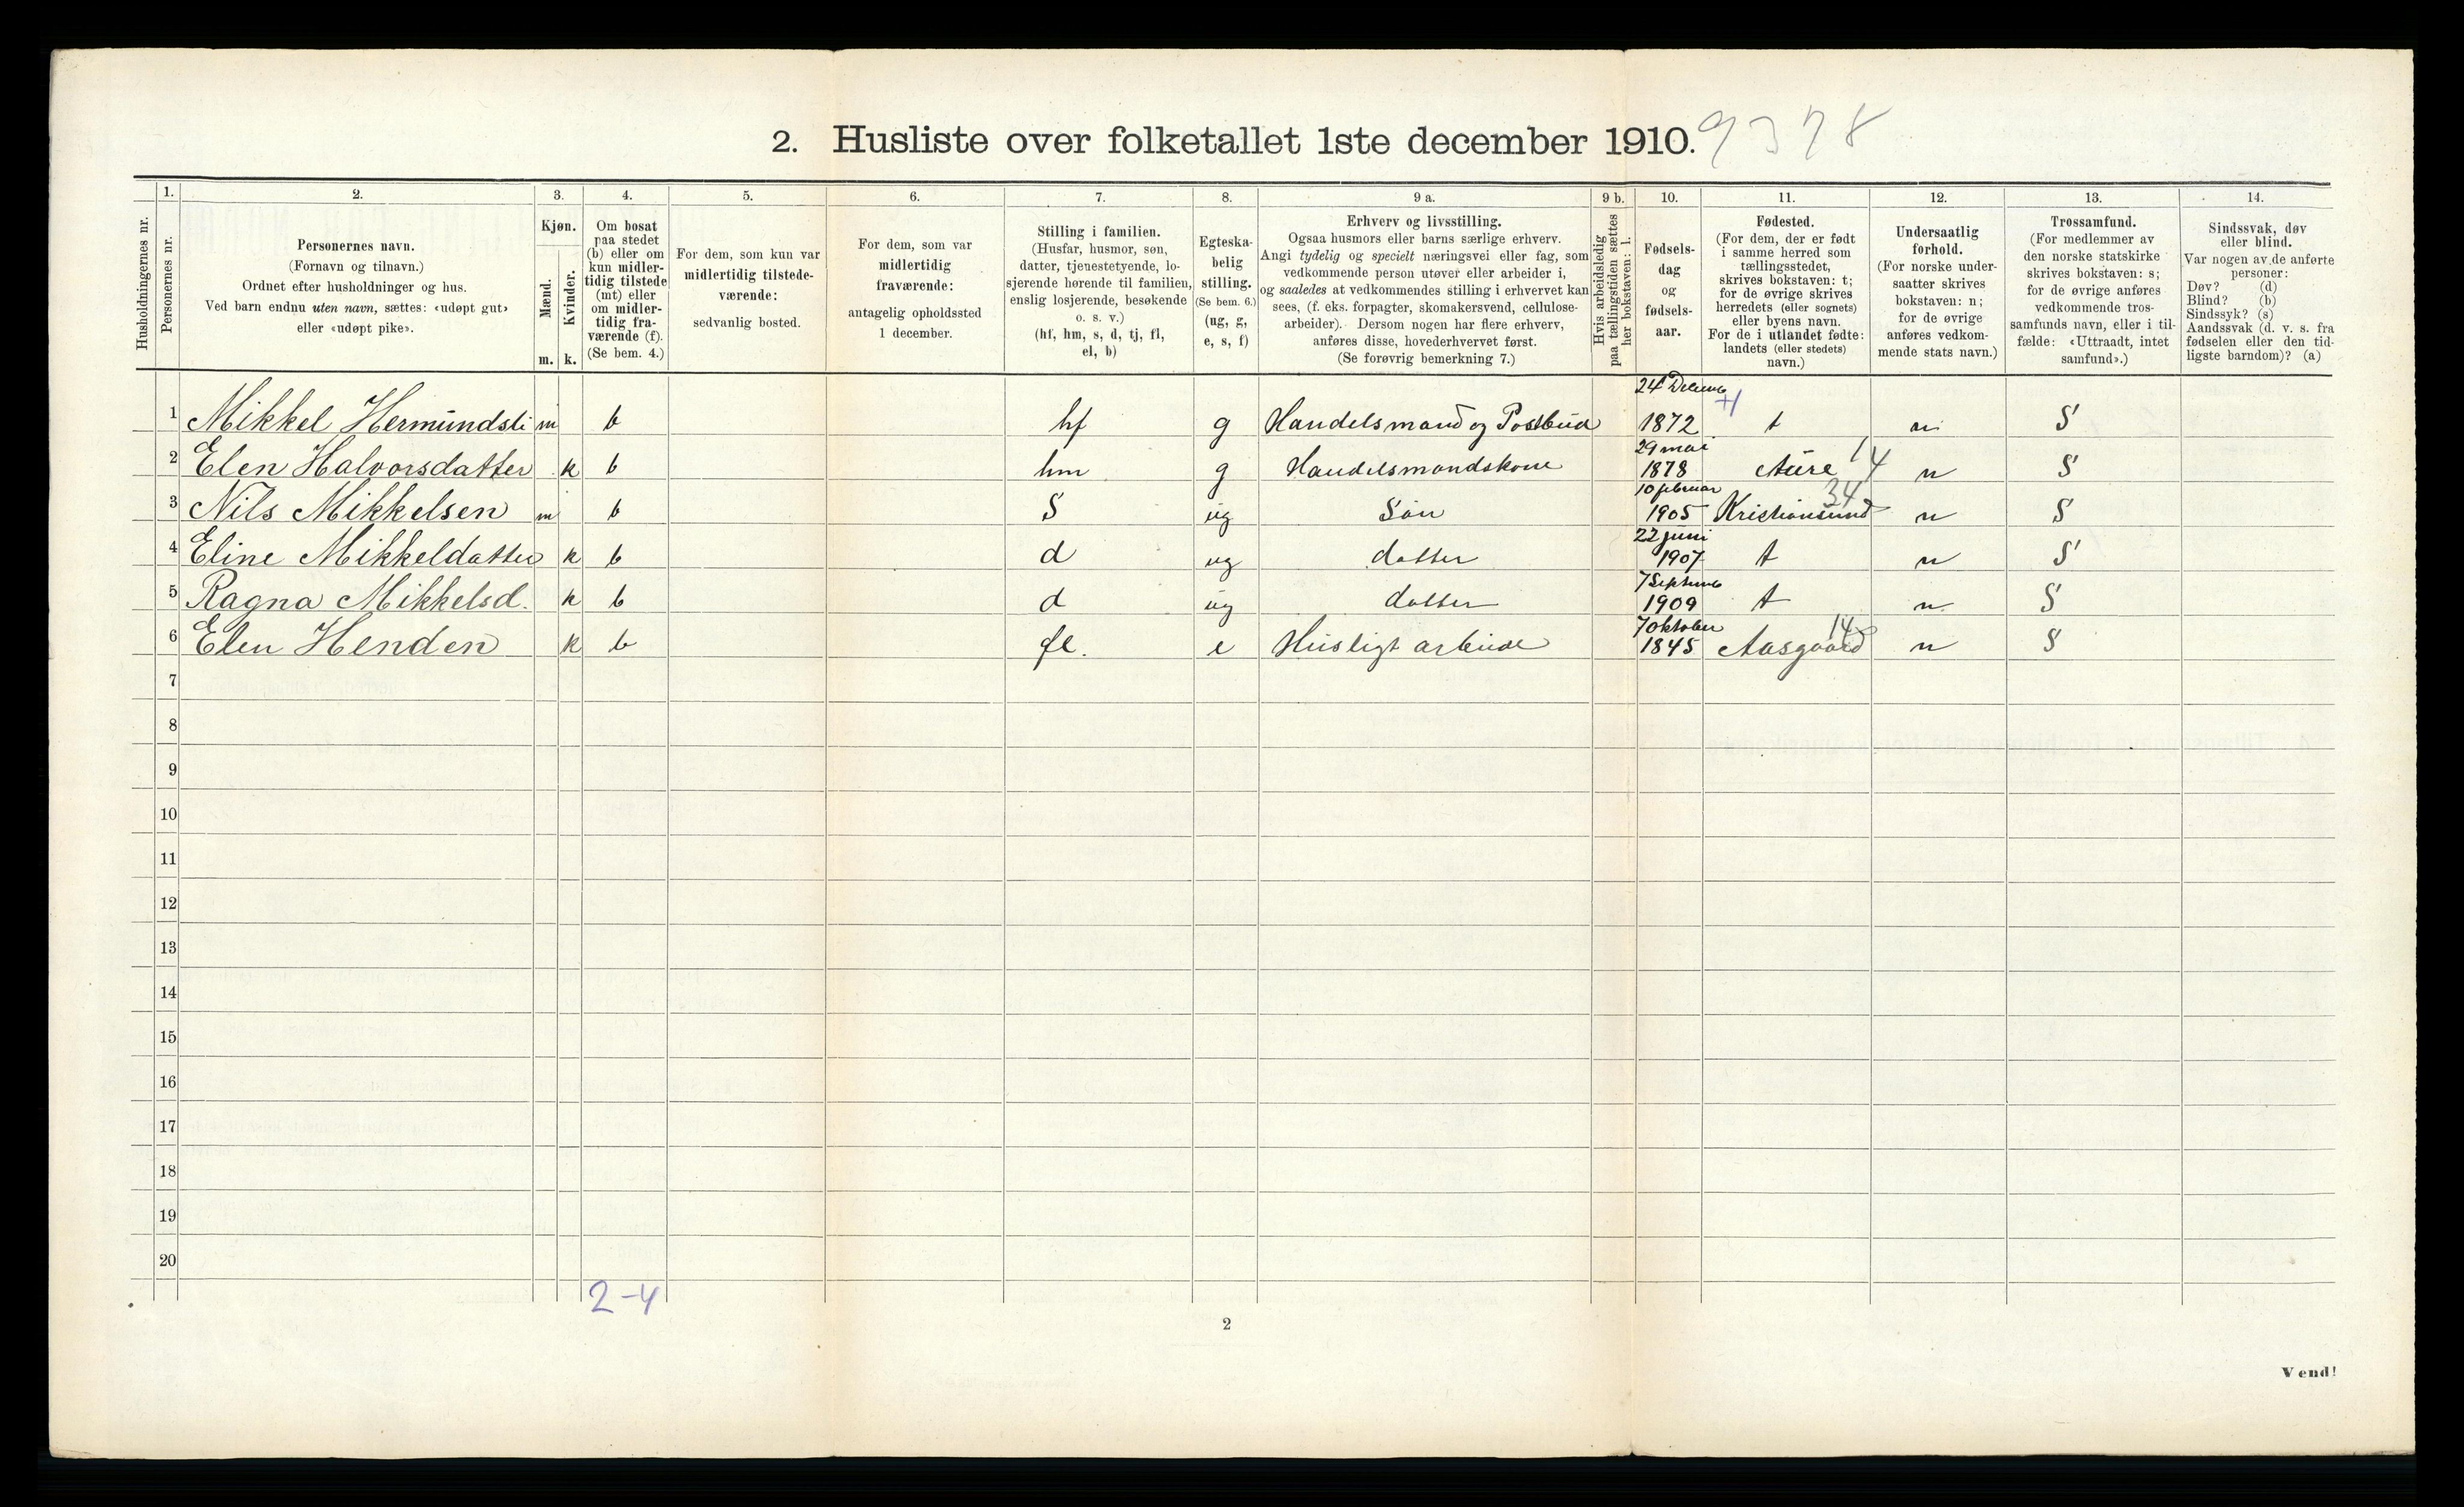 2. Husliste over folketallet 1ste december 1910. 9378
1. 2. 3. 4. 5. 6. 7. 8. 9 a. 9 b. 10. 11. 12. 13. 14.
Husholdningernes nr.
Personernes nr.
Personernes navn.
(Fornavn og tilnavn.)
Ordnet efter husholdninger og hus.
Ved barn endnu uten navn, sættes: «udøpt gut»
eller «udøpt pike».
Kjøn.
Mænd.
Kvinder.
m. k.
Om bosat
paa stedet
(b) eller om
kun midler-
tidig tilstede
(mt) eller
om midler-
tidig fra-
værende (f).
(Se bem. 4.)
For dem, som kun var
midlertidig tilstede-
værende:
sedvanlig bosted.
For dem, som var
midlertidig
fraværende:
antagelig opholdssted
1 december.
Stilling i familien.
(Husfar, husmor, søn,
datter, tjenestetyende, lo-
sjerende hørende til familien,
enslig losjerende, besøkende
o. s. v.)
(hf, hm, s, d, tj, fl,
el, b)
Egteska-
belig
stilling.
(Se bem. 6.)
(ug, g,
e, s, f)
Erhverv og livsstilling.
Ogsaa husmors eller barns særlige erhverv.
Angi tydelig og specielt næringsvei eller fag, som
vedkommende person utøver eller arbeider i,
og saaledes at vedkommendes stilling i erhvervet kan
sees, (f. eks. forpagter, skomakersvend, cellulose-
arbeider). Dersom nogen har flere erhverv,
anføres disse, hovederhvervet først.
(Se forøvrig bemerkning 7.)
Hvis arbeidsledig
paa tællingstiden sættes
her bokstaven: l.
Fødsels-
dag
og
fødsels-
aar.
Fødested.
(For dem, der er født
i samme herred som
tællingsstedet,
skrives bokstaven: t;
for de øvrige skrives
herredets (eller sognets)
eller byens navn.
For de i utlandet fødte:
landets (eller stedets)
navn.)
Undersaatlig
forhold.
(For norske under-
saatter skrives
bokstaven: n;
for de øvrige
anføres vedkom-
mende stats navn.)
Trossamfund.
(For medlemmer av
den norske statskirke
skrives bokstaven: s;
for de øvrige anføres
vedkommende tros-
samfunds navn, eller i til-
fælde: «Uttraadt, intet
samfund».)
Sindssvak, døv
eller blind.
Var nogen av de anførte
personer:
Døv? (d)
Blind? (b)
Sindssyk? (s)
Aandssvak (d. v. s. fra
fødselen eller den tid-
ligste barndom)? (a)
24 Decemb
1 Mikkel Hermundsli m b hf g Handelsmand og Postbud 1872 t n S
29 mai 14
2 Elen Halvorsdatter k b hm g Handelsmandskone 1878 Aure n S
10 februar 34
3 Nils Mikkelsen m b S ug Søn 1905 Kristiansund n S
22 juni
4 Eline Mikkeldatter k b d ug datter 1907 t n S
7 Septemb
5 Ragna Mikkelsd. k b d ug datter 1909 t n S
7 oktober 14
6 Elen Henden k b fl. e Husligt arbeide 1845 Aasgaard n S
7
8
9
10
11
12
13
14
15
16
17
18
19
20
2-4
2
Vend!